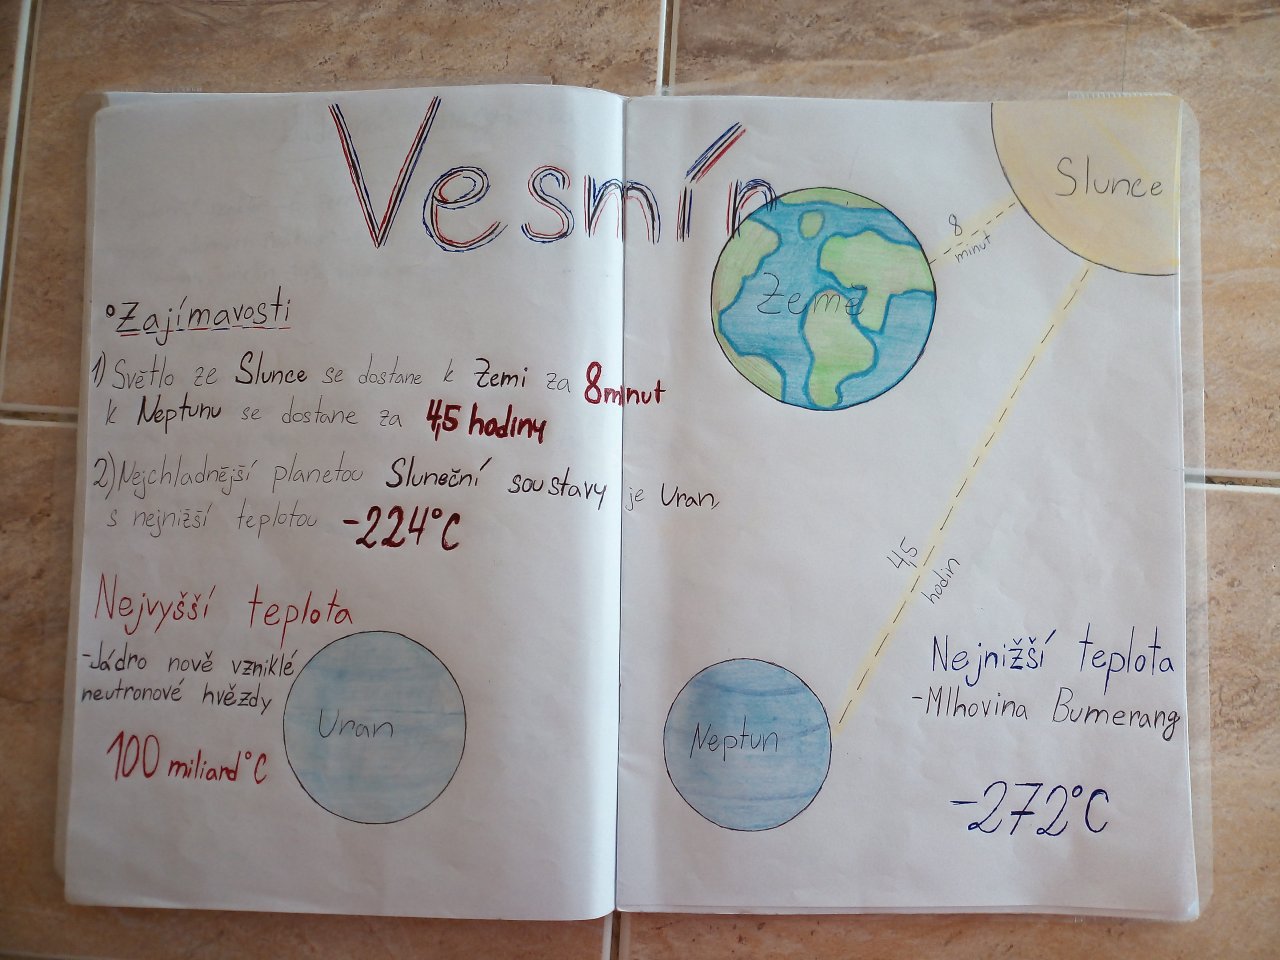 Vesmín
Slunce
8
minut
Země
° Zajímavosti
1) Světlo ze Slunce se dostane k Zemi za 8 minut
k Neptunu se dostane za 4,5 hodiny
2) Nejchladnější planetou Sluneční soustavy je Uran,
s nejnižší teplotou -224°C
4,5
hodin
Nejvyšší teplota
-Jádro nově vzniklé
neutronové hvězdy
100 miliard °C
Uran
Neptun
Nejnižší teplota
-Mlhovina Bumerang
-272°C